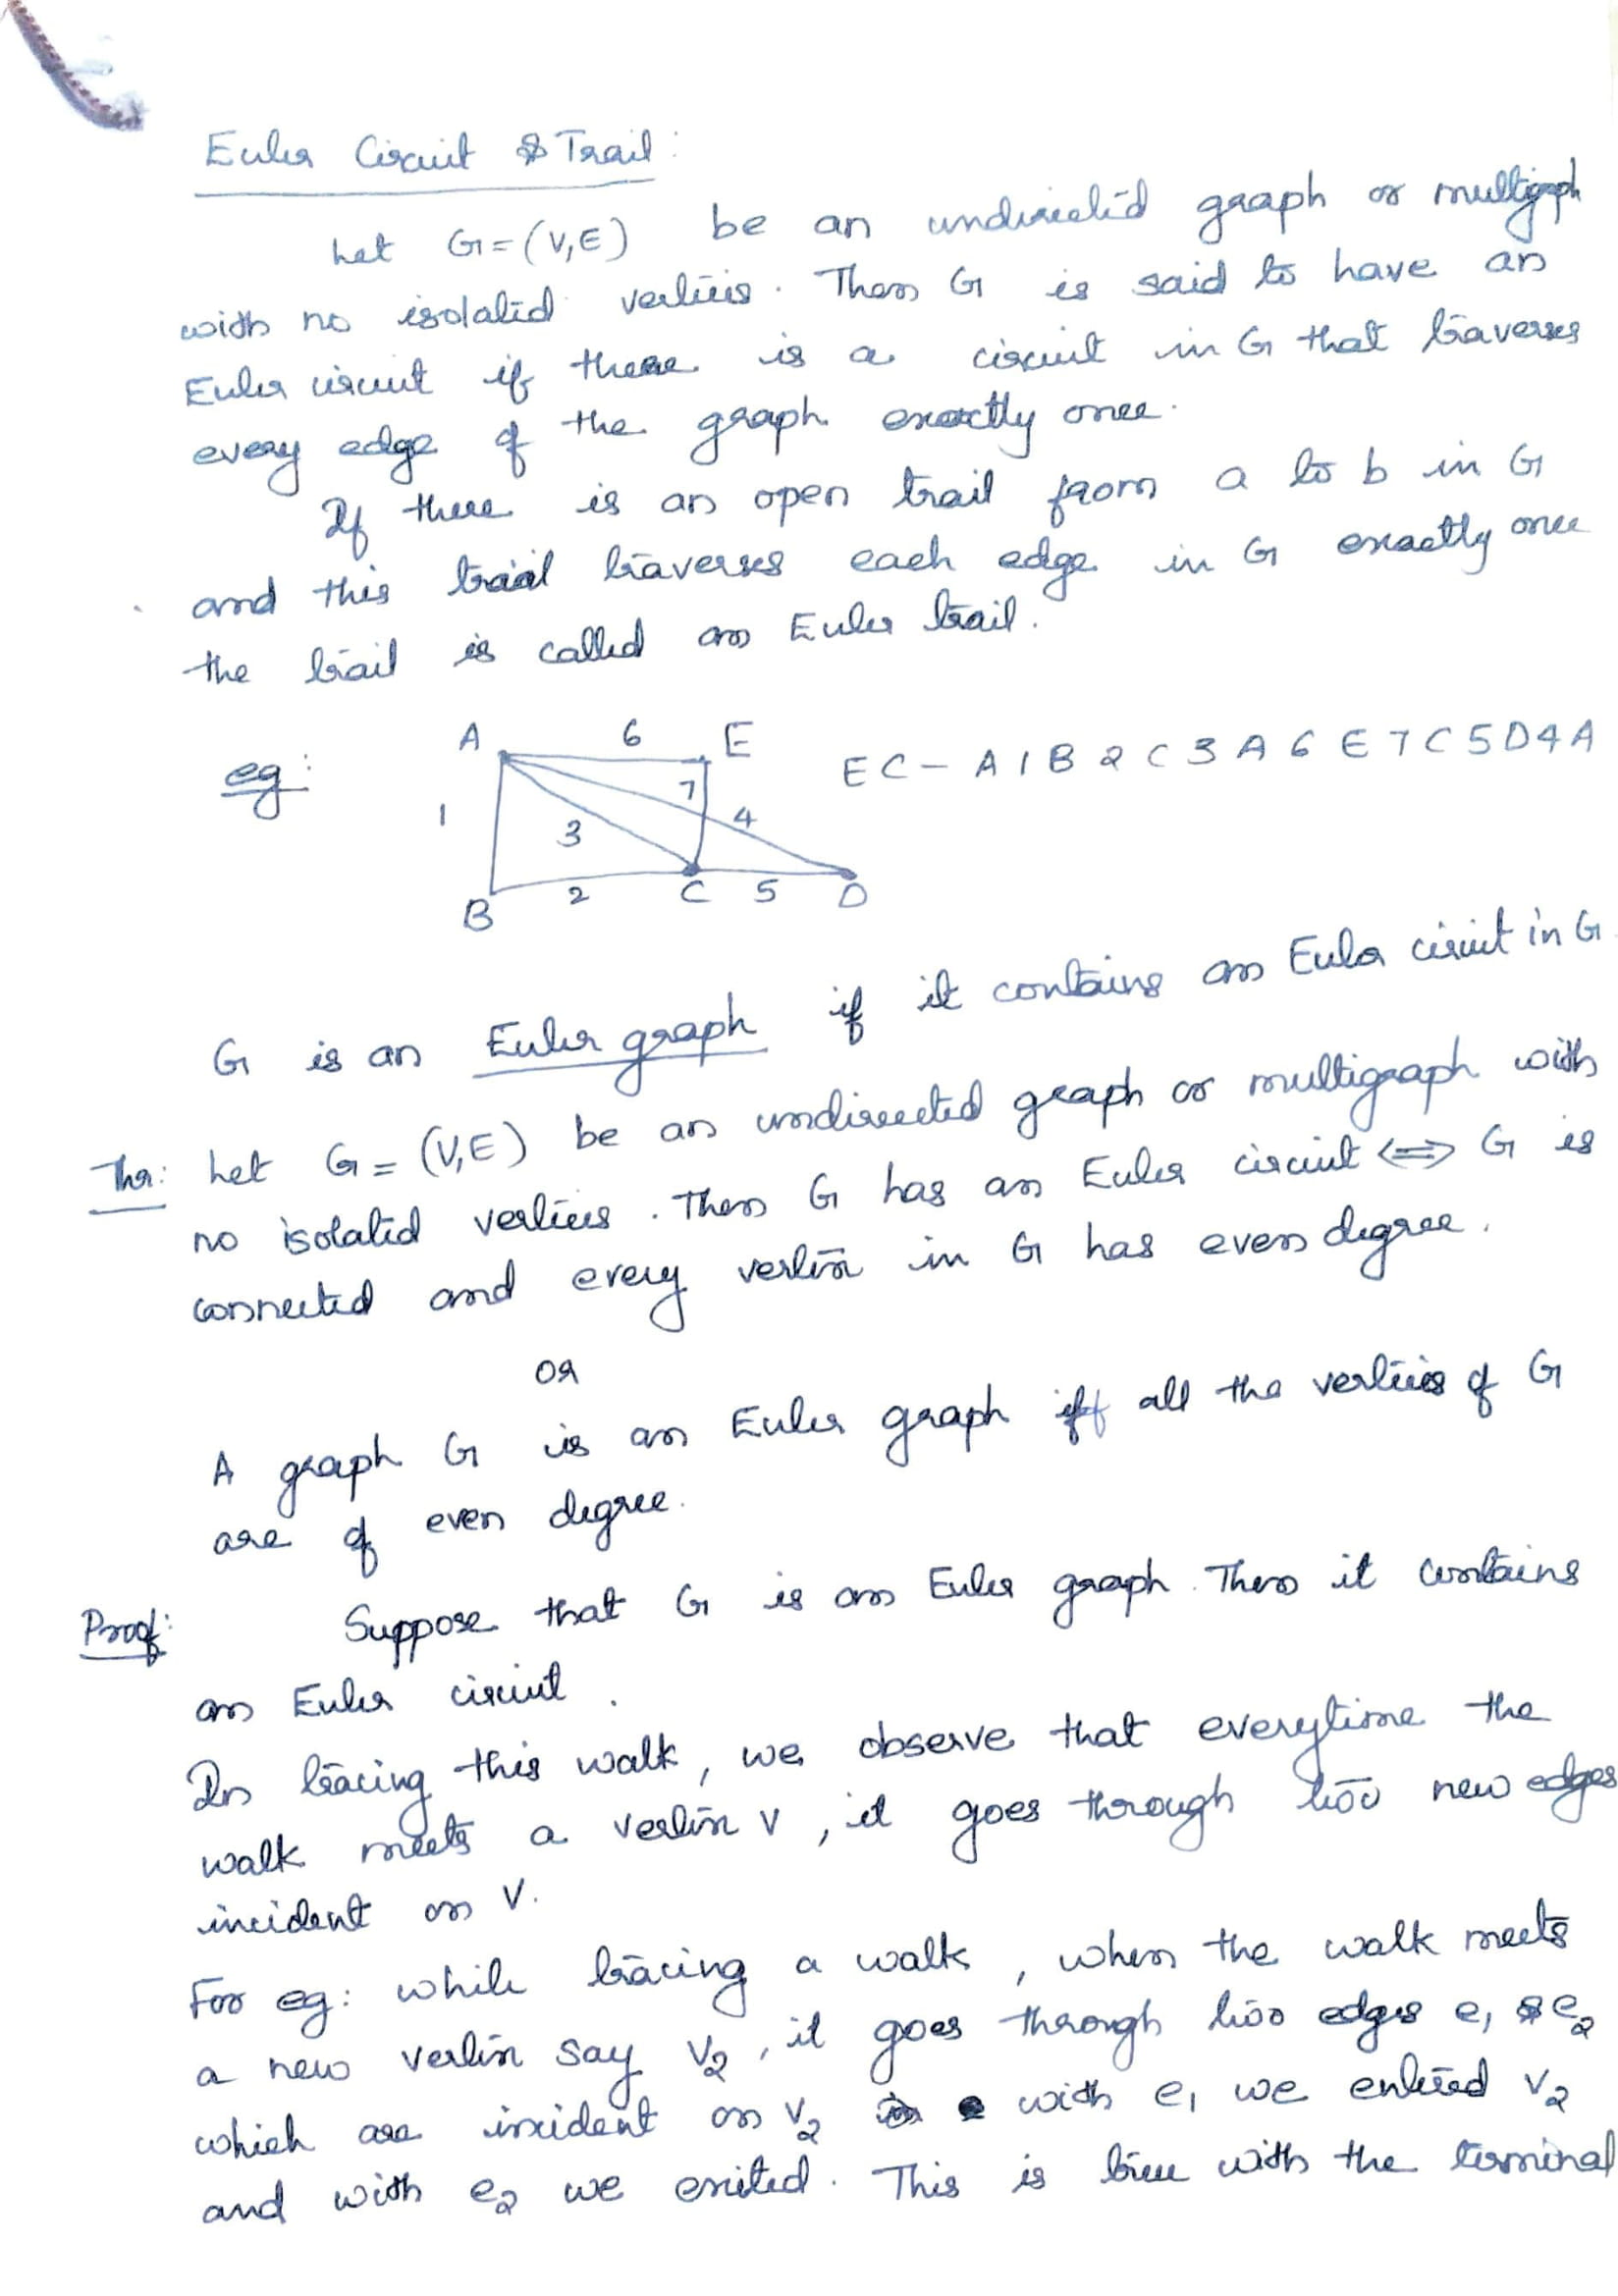 Euler Circuit & Trail:
Let G = (V,E) be an undirected graph or multigraph
with no isolated vertices. Then G is said to have an
Euler circuit if there is a circuit in G that traverses
every edge of the graph exactly once.
If there is an open trail from a to b in G
and this trail traverses each edge in G exactly once
the trail is called an Euler trail.
eg: A 6 E EC- A 1 B 2 C 3 A 6 E 7 C 5 D 4 A
1 3 7 4
B 2 C 5 D
G is an Euler graph if it contains an Euler circuit in G
Thr: Let G = (V,E) be an undirected graph or multigraph with
no isolated vertices. Then G has an Euler circuit ⟺ G is
connected and every vertix in G has even degree.
or
A graph G is an Euler graph iff all the vertices of G
are of even degree.
Proof: Suppose that G is an Euler graph. Then it contains
an Euler circuit.
In tracing this walk, we observe that everytime the
walk meets a vertix v, it goes through two new edges
incident on V.
For eg: while tracing a walk, when the walk meets
a new vertix say V₂, it goes through two edges e₁ & e₂
which are incident on V₂ with e₁ we entered V₂
and with e₂ we exited. This is true with the terminal